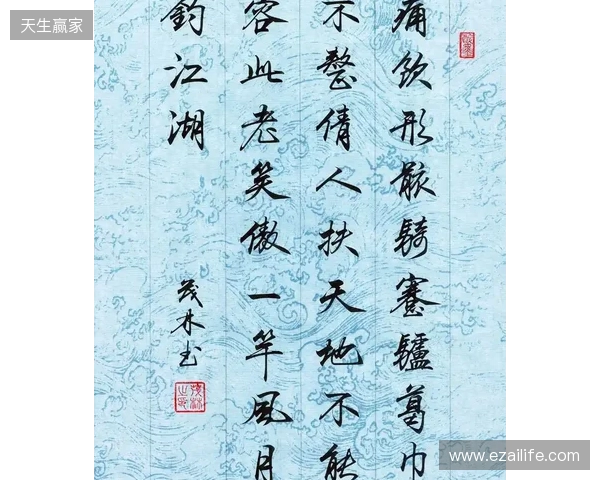 天生赢家
痛飲形骸騎蹇驢葛巾
不整倩人扶天地不能
容此老笑傲一竿風月
釣江湖
茂林书
www.ezailife.com